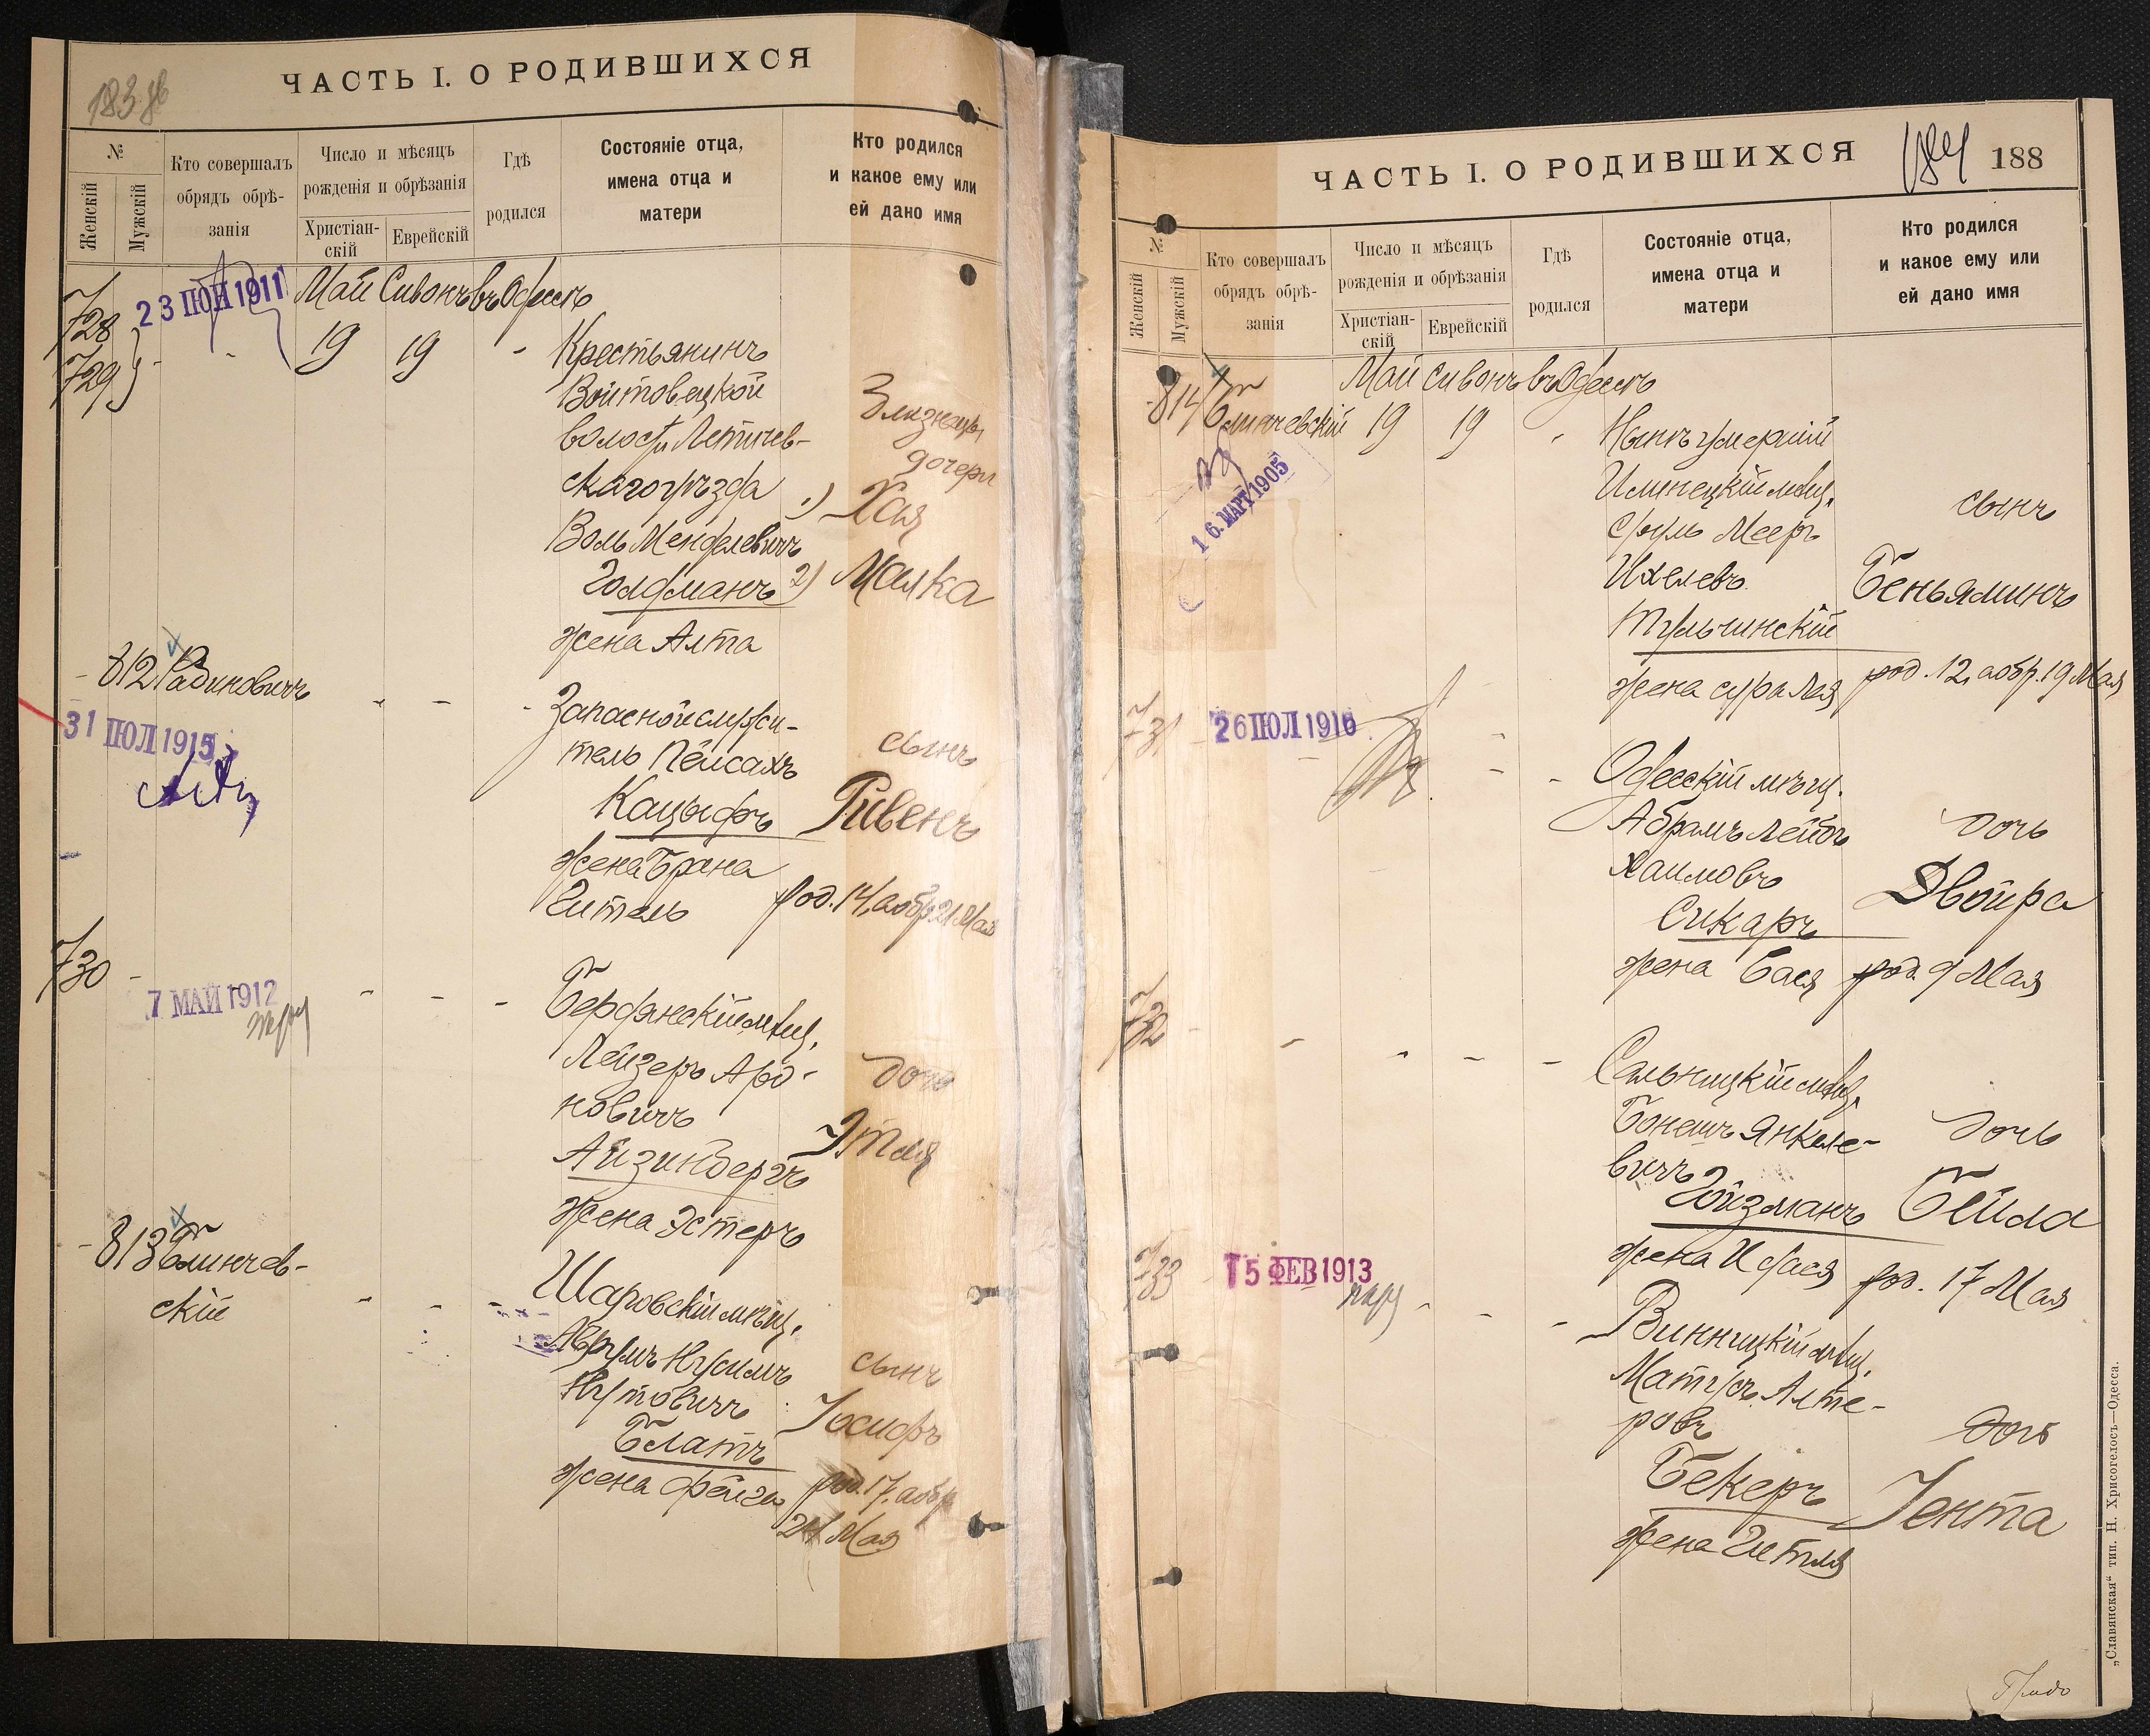 ЧАСТЬ I. О РОДИВШИХСЯ
№
Женскій
Мужскій
Кто совершалъ
обрядъ обрѣ-
занія
Число и мѣсяцъ
рожденія и обрѣзанія
Христіан-
скій
Еврейскій
Гдѣ
родился
Состояніе отца,
имена отца и
матери
Кто родился
и какое ему или
ей дано имя
728
729
23 ІЮН 1911
Май Сивонъ въ Одессѣ
19 19
Крестьянинъ
Войтовецкой
волости Летичев-
скаго уѣзда
Воль Менделевичъ
Голдманъ
жена Алта
Близнецы
дочери
1) Хая
2) Малка
812 Рабиновичъ
31 ІЮЛ 1915
Запасной служи-
тель Пейсахъ
Кацыфъ
жена Брана
Гитель
сынъ
Рувенъ
род. 14, а обр. 21 Мая
730
7 МАЙ 1912
Бердянскій мѣщ.
Лейзеръ Аро-
новичъ
Айзинбергъ
жена Эстеръ
дочь
Этля
813 Блинчев-
скій
Шаровскій мѣщ.
Аврумъ Нусимъ
Нутовичъ
Блатъ
жена Фейга
сынъ
Іосифъ
род. 17, а обр.
24 Мая
ЧАСТЬ I. О РОДИВШИХСЯ
184 188
№
Женскій
Мужскій
Кто совершалъ
обрядъ обрѣ-
занія
Число и мѣсяцъ
рожденія и обрѣзанія
Христіан-
скій
Еврейскій
Гдѣ
родился
Состояніе отца,
имена отца и
матери
Кто родился
и какое ему или
ей дано имя
814 Блинчевскій
16. МАРТ 1905
Май Сивонъ въ Одессѣ
19 19
Нынѣ умершій
Илинецкій мѣщ.
Сруль Мееръ
Ихелевъ
Тульчинскій
жена Сура Лея
сынъ
Беньяминъ
род. 12, а обр. 19 Мая
731
26 ІЮЛ 1916
Одесскій мѣщ.
Абрамъ Лейбъ
Хаимовъ
Сикаръ
жена Бася
дочь
Двойра
род. 9 Мая
732
Сальницкій мѣщ.
Бонешъ Янкеле-
вичъ
Гойзманъ
жена Идася
дочь
Бейла
род. 17 Мая
733
15 ФЕВ 1913
Винницкій мѣщ.
Матусъ Алте-
ровъ
Бекеръ
жена Гитля
дочь
Іента
„Славянская“ тип. Н. Хрисогелосъ—Одесса.